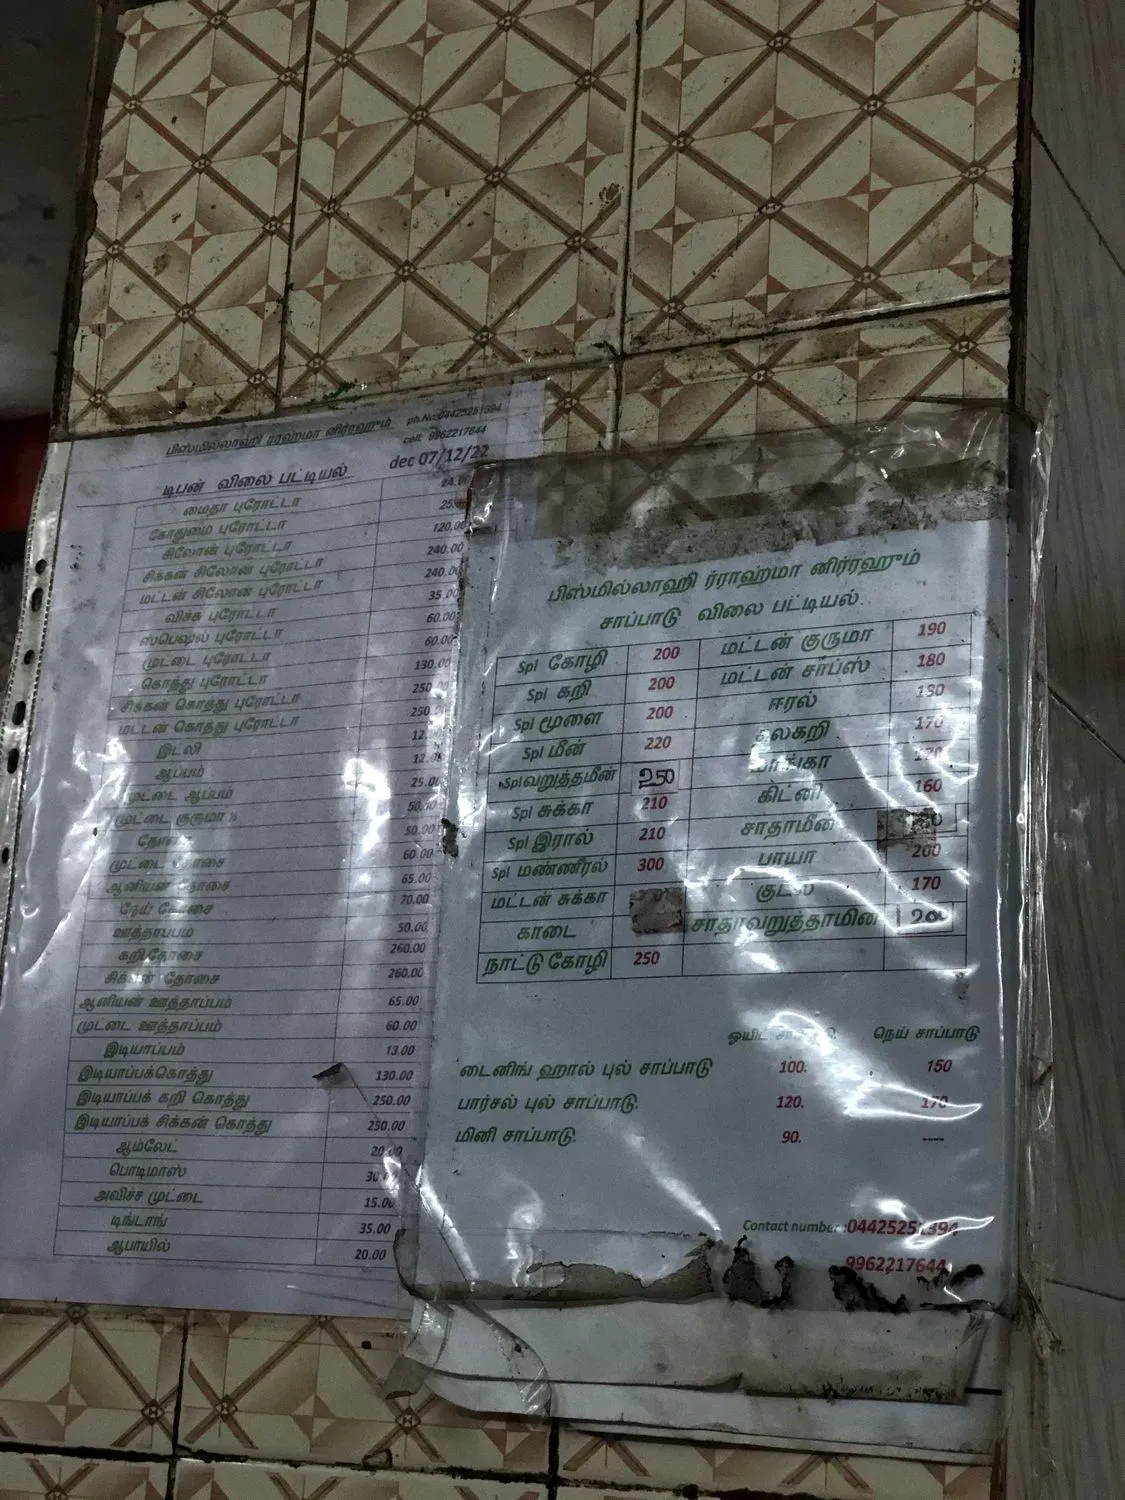 பிஸ்மில்லாஹி ர்ராஹ்மா னிர்ரஹும் ph.No:04425251394
cell: 9962217644
டிபன் விலை பட்டியல் dec 07/12/22
மைதா புரோட்டா
கோதுமை புரோட்டா 25
சிலோன் புரோட்டா 120.00
சிக்கன் சிலோன் புரோட்டா 240.00
மட்டன் சிலோன் புரோட்டா 240.00
விச்சு புரோட்டா 35.00
ஸ்பெஷல் புரோட்டா 60.00
முட்டை புரோட்டா 60.00
கொத்து புரோட்டா 130.00
சிக்கன் கொத்து புரோட்டா 250
மட்டன் கொத்து புரோட்டா 250.0
இட்லி 12
ஆப்பம் 12
முட்டை ஆப்பம் 25.0
முட்டை குருமா ½ 50.00
50.00
முட்டை தோசை 60.00
ஆனியன் தோசை 65.00
நெய் தோசை 70.00
ஊத்தாப்பம் 50.00
கறி தோசை 260.00
சிக்கன் தோசை 260.00
ஆனியன் ஊத்தாப்பம் 65.00
முட்டை ஊத்தாப்பம் 60.00
இடியாப்பம் 13.00
இடியாப்பக்கொத்து 130.00
இடியாப்ப கறி கொத்து 250.00
இடியாப்ப சிக்கன் கொத்து 250.00
ஆம்லேட் 20.00
பொடிமாஸ் 30
அவிச்ச முட்டை 15.00
டிங்டாங் 35.00
ஆபாயில் 20.00
பிஸ்மில்லாஹி ர்ராஹ்மா னிர்ரஹும்
சாப்பாடு விலை பட்டியல்
Spl கோழி 200 மட்டன் குருமா 190
Spl கறி 200 மட்டன் சாப்ஸ் 180
Spl மூளை 200 ஈரல்
Spl மீன் 220 தலகறி 170
Spl வறுத்தமீன் 250
Spl சுக்கா 210 கிட்னி 160
Spl இரால் 210 சாதாமீன்
Spl மண்ணீரல் 300 பாயா 200
மட்டன் சுக்கா குடல் 170
காடை சாதாவறுத்தாமின் 200
நாட்டு கோழி 250
ஒயிட் சாப்பாடு. நெய் சாப்பாடு
டைனிங் ஹால் புல் சாப்பாடு 100. 150
பார்சல் புல் சாப்பாடு. 120. 170
மினி சாப்பாடு. 90. ----
Contact number :04425251394
9962217644